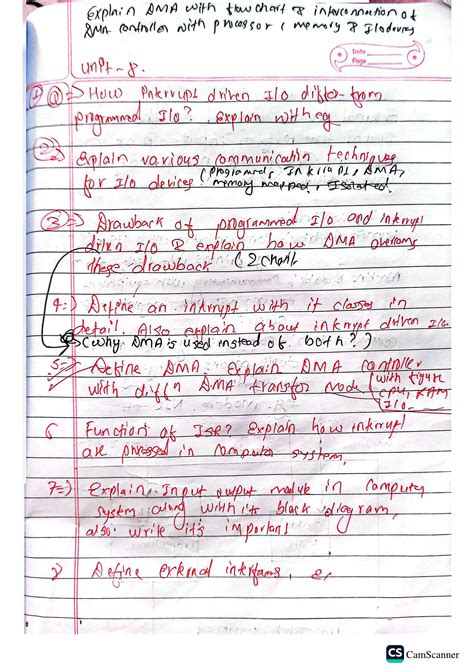 Explain DMA with flowchart & interconnection of
DMA controller with processor, memory & I/o devices
Date
Page
Unit - 8.
1) Q=> How Interrupt driven I/o differ from
programmed I/o? Explain with eg
2 Explain various communication techniques
for I/o devices (programmed, Interrupt, DMA,
memory mapped, Isolated
3 => Drawback of programmed I/o and interrupt
driven I/o & explain how DMA overcoms
these drawback (2
4=) Define an interrupt with it classes in
detail. Also explain about interrupt driven I/o
(why DMA is used instead of both?)
5=> Define DMA. Explain DMA controller
with diffn DMA transfer mode (with figure
CPU, RAM
I/o
6 Function of ISR? Explain how interrupt
are processed in computer system.
7=) Explain Input output module in computer
system along with its block diagram,
also write it's important
8 Define external interfaces,
CS CamScanner